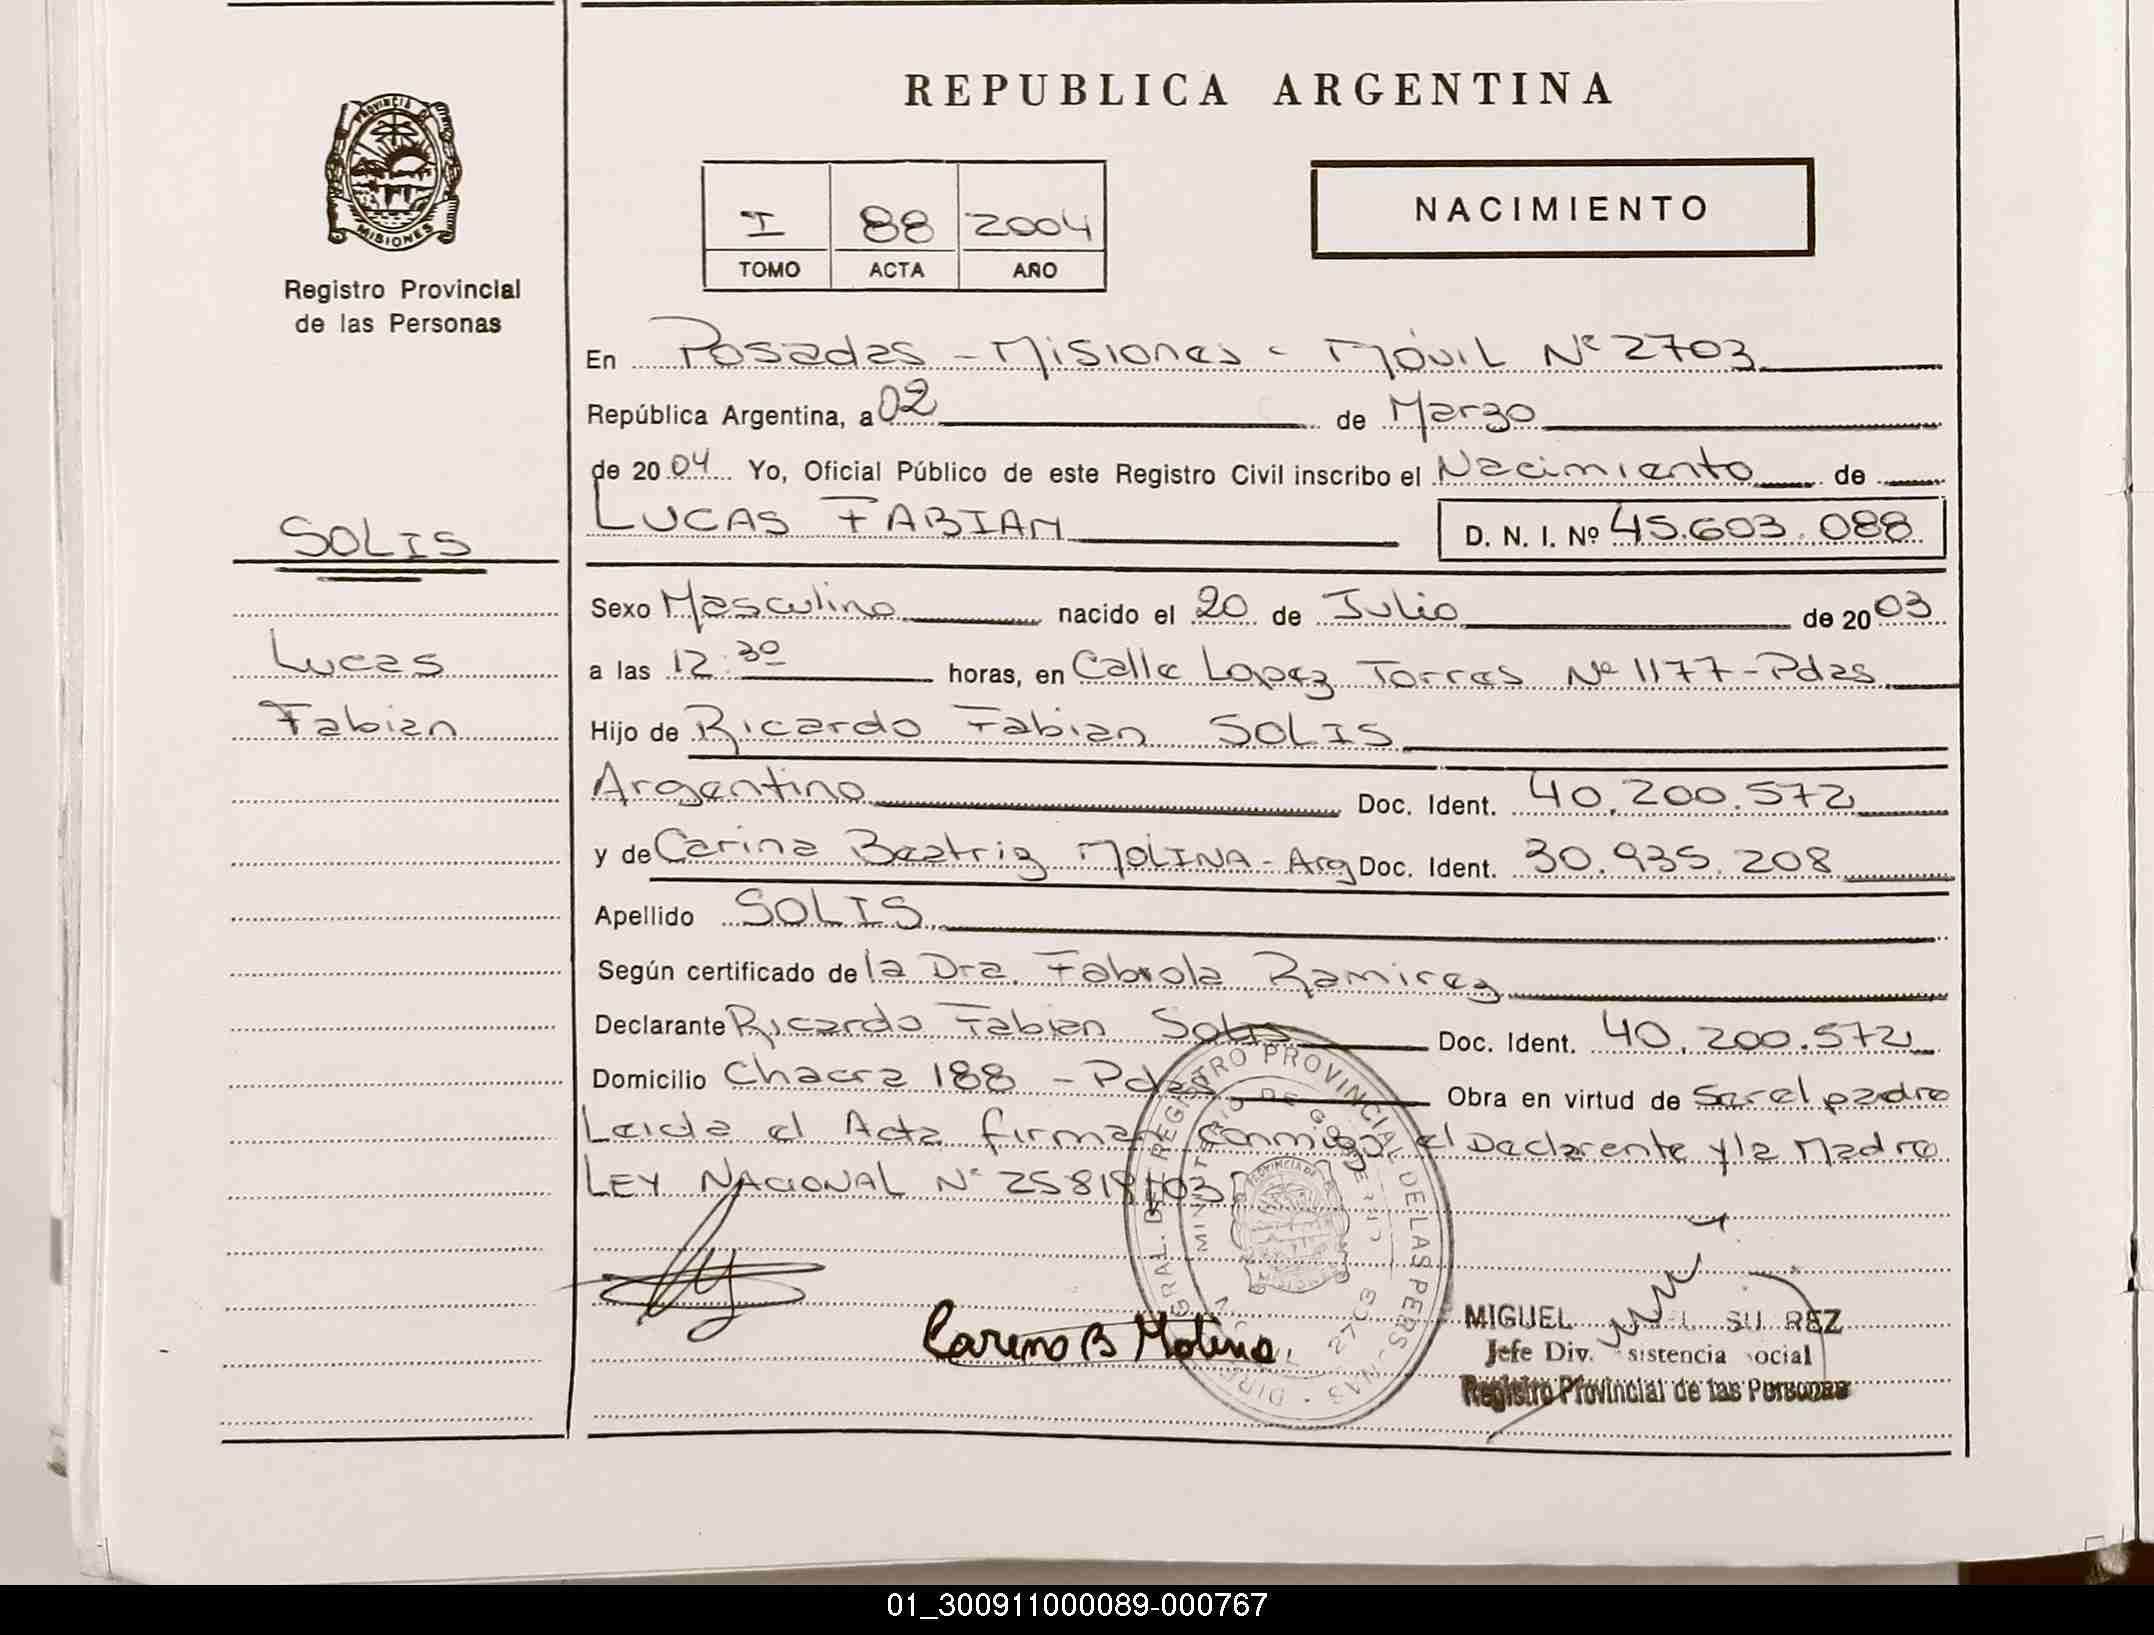 REPUBLICA ARGENTINA
PROVINCIA DE
MISIONES
Registro Provincial
de las Personas
I 88 2004
TOMO ACTA AÑO
NACIMIENTO
En Posadas - Misiones - Móvil Nº 2703
República Argentina, a 02 de Marzo
de 2004 Yo, Oficial Público de este Registro Civil inscribo el Nacimiento de
SOLIS
LUCAS FABIAN D. N. I. Nº 45.603.088
Sexo Masculino nacido el 20 de Julio de 2003
Lucas
a las 12:30 horas, en Calle Lopez Torres Nº 1177 - Pdas
Fabian
Hijo de Ricardo Fabian SOLIS
Argentino Doc. Ident. 40.200.572
y de Carina Beatriz MOLINA - Arg Doc. Ident. 30.935.208
Apellido SOLIS
Según certificado de la Dra. Fabiola Ramirez
Declarante Ricardo Fabian Solis Doc. Ident. 40.200.572
Domicilio Chacra 188 - Pdas Obra en virtud de Ser el padre
Leida el Acta firman conmigo el Declarante y la Madre
LEY NACIONAL Nº 25819/03
REGISTRO PROVINCIAL DE LAS PERSONAS
MINISTERIO DE GOBIERNO
2703
Carina B Molina
MIGUEL
Jefe Div.
Registro Provincial de las Personas
01_300911000089-000767